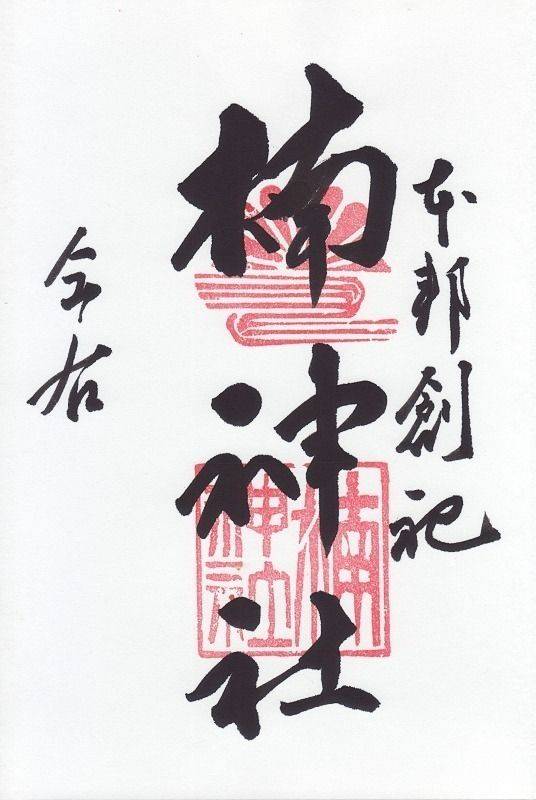 本邦創祀
楠神社
楠
神社